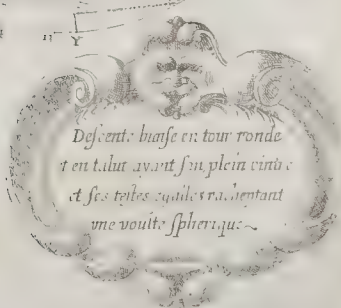 11
Y
Descente biaise en tour ronde
et en talut ayant son plein cintre
et ses testes egalles rachentant
une voulte spherique